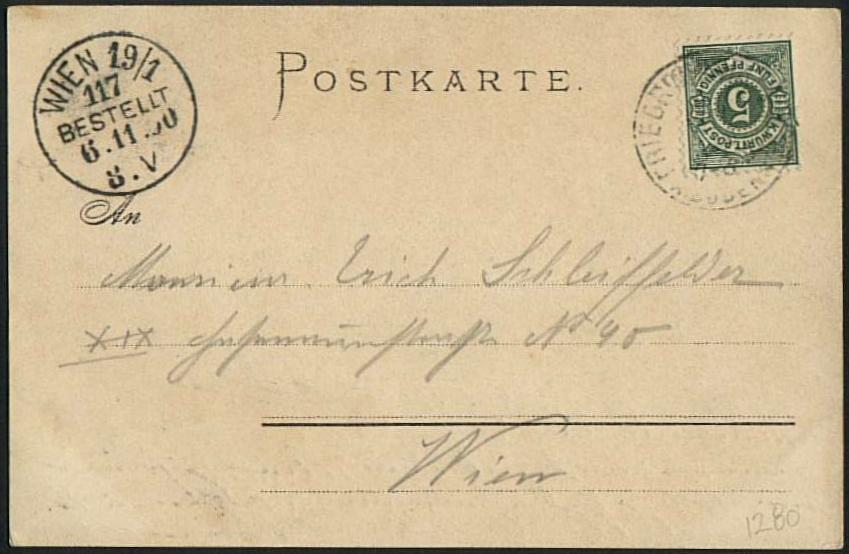 WIEN 19/1
117
BESTELLT
6.11.00
8.V
POSTKARTE.
FÜNF PFENNIG
5
K.WÜRTT.POST
FRIEDRI
An
Monsieur Erich Schleiffelder
XIX strasse No 40
Wien
1280